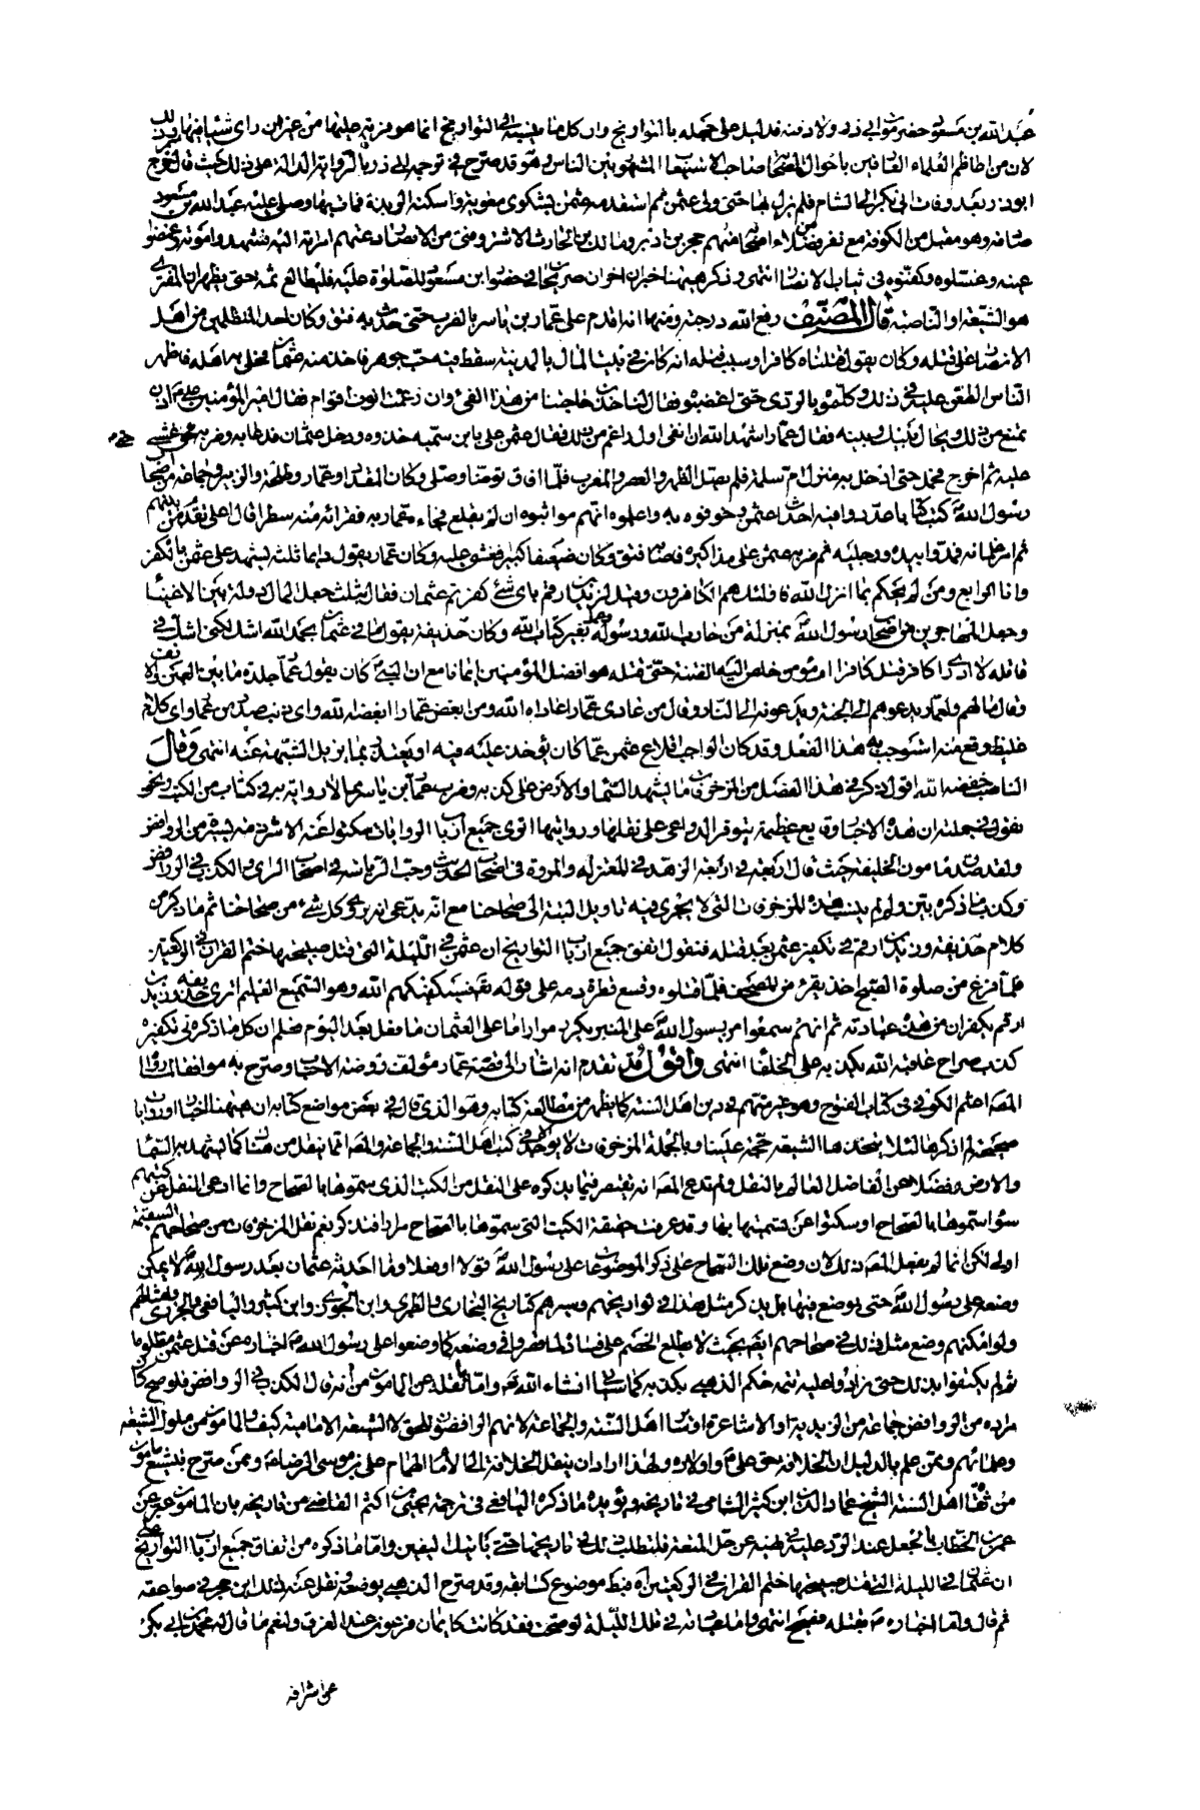 عبد الله بن مسعود حضر موت ابي ذر ولا دفنه فدليل على جهله بالتواريخ وان كل ما ينسبه الى التواريخ انما هو فرية عليها من غير ان راى شيئا منها وذلك
لان من اعاظم العلماء العارفين باحوال الصحابة صاحب الاستيعاب المشهور بين الناس وهو قد صرح في توجيه ابي ذر بالرواية الدالة على ذلك حيث قال خرج
ابو ذر بعد وفات ابي بكر الى الشام فلم يزل بها حتى ولي عثمن ثم استقدمه عثمن لشكوى معوية واسكنه الربذة فمات بها وصلى عليه عبد الله بن مسعود
صادفه وهو مقبل من الكوفة مع نفر فضلاء من اصحابه منهم حجر بن ادبر ومالك بن الحارث الاشتر وفتى من الانصار دعتهم امرأته اليه فشهدوا موته وغمضوا
عينيه وغسلوه وكفنوه في ثياب الانصار انتهى وذكر هيهنا خبران اخران صريحان في حضور ابن مسعود للصلوة عليه فليطالع ثمة حتى يظهر ان المفترى
هو الشيعة او الناصبة قال المصنف رفع الله درجته ومنها انه اقدم على عمار بن ياسر بالضرب حتى حدث به فتق وكان احد المتظلمين من اهل
الامصار على قتله وكان يقول قتلناه كافرا وسبب قتله انه كان في بيت المال بالمدينة سفط فيه حب جوهر فاخذ منه عثمان ما حلى به اهله فاظهر
الناس الطعن عليه في ذلك وكلموه بالردى حتى اغضبوه فقال لناخذن حاجتنا من هذا الفئ وان رغمت انوف اقوام فقال امير المؤمنين عليه السلام اذن
تمنع من ذلك ويحال بينك وبينه فقال عمار اشهد الله ان انفي اول راغم من ذلك فقال عثمن على يا بن سمية خذوه ودخل عثمان فدعا به وضربه حتى غشي
عليه ثم اخرج فحمل حتى ادخل بيت منزل ام سلمة فلم يصل الظهر والعصر والمغرب فلما افاق توضأ وصلى وكان المقداد وعمار وطلحة والزبير وجماعة من اصحاب
رسول الله كتبوا كتابا عددوا فيه احداث عثمن وخوفوه به واعلموه انهم مواثبوه ان لم يقلع فجاء عمار به فقرأ منه سطرا قال اعلي تقدم من بينهم
ثم امر غلمانه فمدوا بيديه ورجليه ثم ضربه عثمن على مذاكيره فاصابه فتق وكان ضعيفا كبيرا فغشي عليه وكان عمار يقول دايما ثلثة يشهد على عثمن بالكفر
وانا الرابع ومن لم يحكم بما انزل الله فاولئك هم الكافرون وقيل لزيد بن ارقم باي شئ كفرتم عثمان فقال بثلث جعل المال دولة بين الاغنياء
وجعل المهاجرين من اصحاب رسول الله بمنزلة من حارب الله ورسوله وعمل بغير كتاب الله وكان حذيفة يقول ما في عثمان بحمد الله اشك لكني اشك في
قاتله لا ادري اكافر قتل كافرا او مؤمن خلص اليه الفتنة حتى قتله هو افضل المؤمنين ايمانا مع ان النبي كان يقول عمار جلدة ما بين العين والانف
وقال ما لهم ولعمار يدعوهم الى الجنة ويدعونه الى النار وقال من عادى عمارا عاداه الله ومن ابغض عمارا ابغضه الله واي ذنب صدر من عمار واي كلام
غليظ وقع منه استوجب به هذا الفعل وقد كان الواجب اقلاع عثمن عما كان يؤخذ عليه فيه او يعتذر بما يزيل الشبهة عنه انتهى وقال
الناصب خفضه الله اقول ذكر في هذا الفصل من المزخرفات ما يشهد السماء والارض على كذبه وضرب عمار بن ياسر مما لا رواية به في كتاب من الكتب ونحن
نقول في جملته ان هذه الاخبار وقايع عظيمة يتوفر الدواعي على نقلها وروايتها اترى جميع ارباب الروايات سكتوا عنه الا شرذمة يسيرة من الروافض
ولقد صدق مامون الخليفة حيث قال اربعة في اربعة الزهد في المعتزلة والمروة في اصحاب الحديث وحب الرياسة في اصحاب الراي والكذب في الروافض
وكذب ما ذكره بين ولم ينسب هذه المزخرفات التي لا يجرى فيه تاويل البتة الى صحاحنا مع انه يدعي انه يروي كل شئ من صحاحنا ثم ما ذكر من
كلام حذيفة وزيد بن ارقم في تكفير عثمن بعد قتله فنقول اتفق جميع ارباب التواريخ ان عثمن في الليلة التي قتل صبيحتها ختم القرآن في الركعتين
فلما فرغ من صلوة الصبح اخذ يقرء من المصحف فلما قتلوه وقع قطرة دمه على قوله تعه فسيكفيكهم الله وهو السميع العليم اترى حذيفة وزيد بن
ارقم يكفران من هذه عبادته ثم انهم سمعوا من رسول الله على المنبر يكرر مرارا ما على العثمان ما فعل بعد اليوم فعلم ان كل ما ذكره في تكفيره
كذب صراح عاقبه الله بكذبه على الخلفا انتهى واقول قد تقدم انه اشار الى قصة عمار مؤلف روضة الاحباب وصرح به موافقا لما رواه
المصه اعثم الكوفي في كتاب الفتوح وهو غير متهم في دين اهل السنة كما يظهر من مطالعة كتابه وهو الذي قال في بعض مواضع كتابه ان هيهنا اخبارا وروايات
صحيحة لم اذكرها لئلا يتخذها الشيعة حجة علينا وبالجملة المزخرفات لا يوجد الا في كتب اهل السنة والجماعة والمصه انما ينقل من هناك كما يشهد به السماء
والارض فضلا عن افاضل العالم بالنقل ولم يدع المصه انه يقتصر فيما يذكره على النقل من الكتب الذي سموها بالصحاح وانما ادعى النقل عن كتبهم
سواء سموها بالصحاح او سكتوا عن تسميتها بها وقد عرفت حقيقة الكتب التي سموها بالصحاح مرارا فتذكر نعم نقل المزخرفات من صحاحهم السقيمة
اولى لكن انما لم يفعل المصه ذلك لان وضع تلك الصحاح على ذكر الموضوعات على رسول الله قولا او فعلا وما احدثه عثمان بعد رسول الله لا يمكن
وضعه على رسول الله حتى يوضع فيها بل يذكر مثل هذا في تواريخهم وسيرهم كتاريخ البخاري والطبري وابن الجوزي وابن كثير واليافعي والجزري وامثالهم
ولو امكنهم وضع مثل ذلك في صحاحهم ايضه بحيث لا يطلع الخصم على فساده لما قصروا في وضعه كما وضعوا على رسول الله صم اخباره عن قتل عثمن مظلوما
ثم لم يكتفوا بذلك حتى زادوا عليه تتمة حكم الذهبي بكذبه كما سياتي انشاء الله تعه واما ما نقله عن المامون من انه قال الكذب في الروافض فلو صح كان
مراده من الروافض جماعة من الزيدية او الاشاعرة وسائر اهل السنة والجماعة لانهم الرافضون للحق لا الشيعة الامامية كيف والمامون من ملوك الشيعة
وعلمائهم وممن علم بالدليل ان الخلافة حق علي ع واولاده ولهذا اراد ان ينقل الخلافة الى الامام الهمام علي بن موسى الرضا ع وممن صرح بتشيع مامون
من ثقات اهل السنة الشيخ عماد الدين ابن كثير الشامي في تاريخه ويؤيده ما ذكره اليافعي في ترجمة يحيى بن اكثم القاضي من تاريخه بان المامون عبر عن
عمر بن الخطاب بالجعل عند الرد عليه في نهيه عن حل المتعة فليطلب ذلك في تاريخهما حتى ياتيك اليقين واما ما ذكره من اتفاق جميع ارباب التواريخ على
ان عثمان في الليلة التي قتل صبيحتها ختم القران في الركعتين آه فبط موضوع كسابقه وقد صرح الذهبي بوضعه في نقل عنه ذلك ابن حجر في صواعقه
ثم قال واما اخباره صم بقتله فصحيح انتهى واما عبادته في تلك الليلة لو صحت فقد كانت كايمان فرعون عند الغرق ولنعم ما قال له محمد بن ابي بكر
على اشرافه